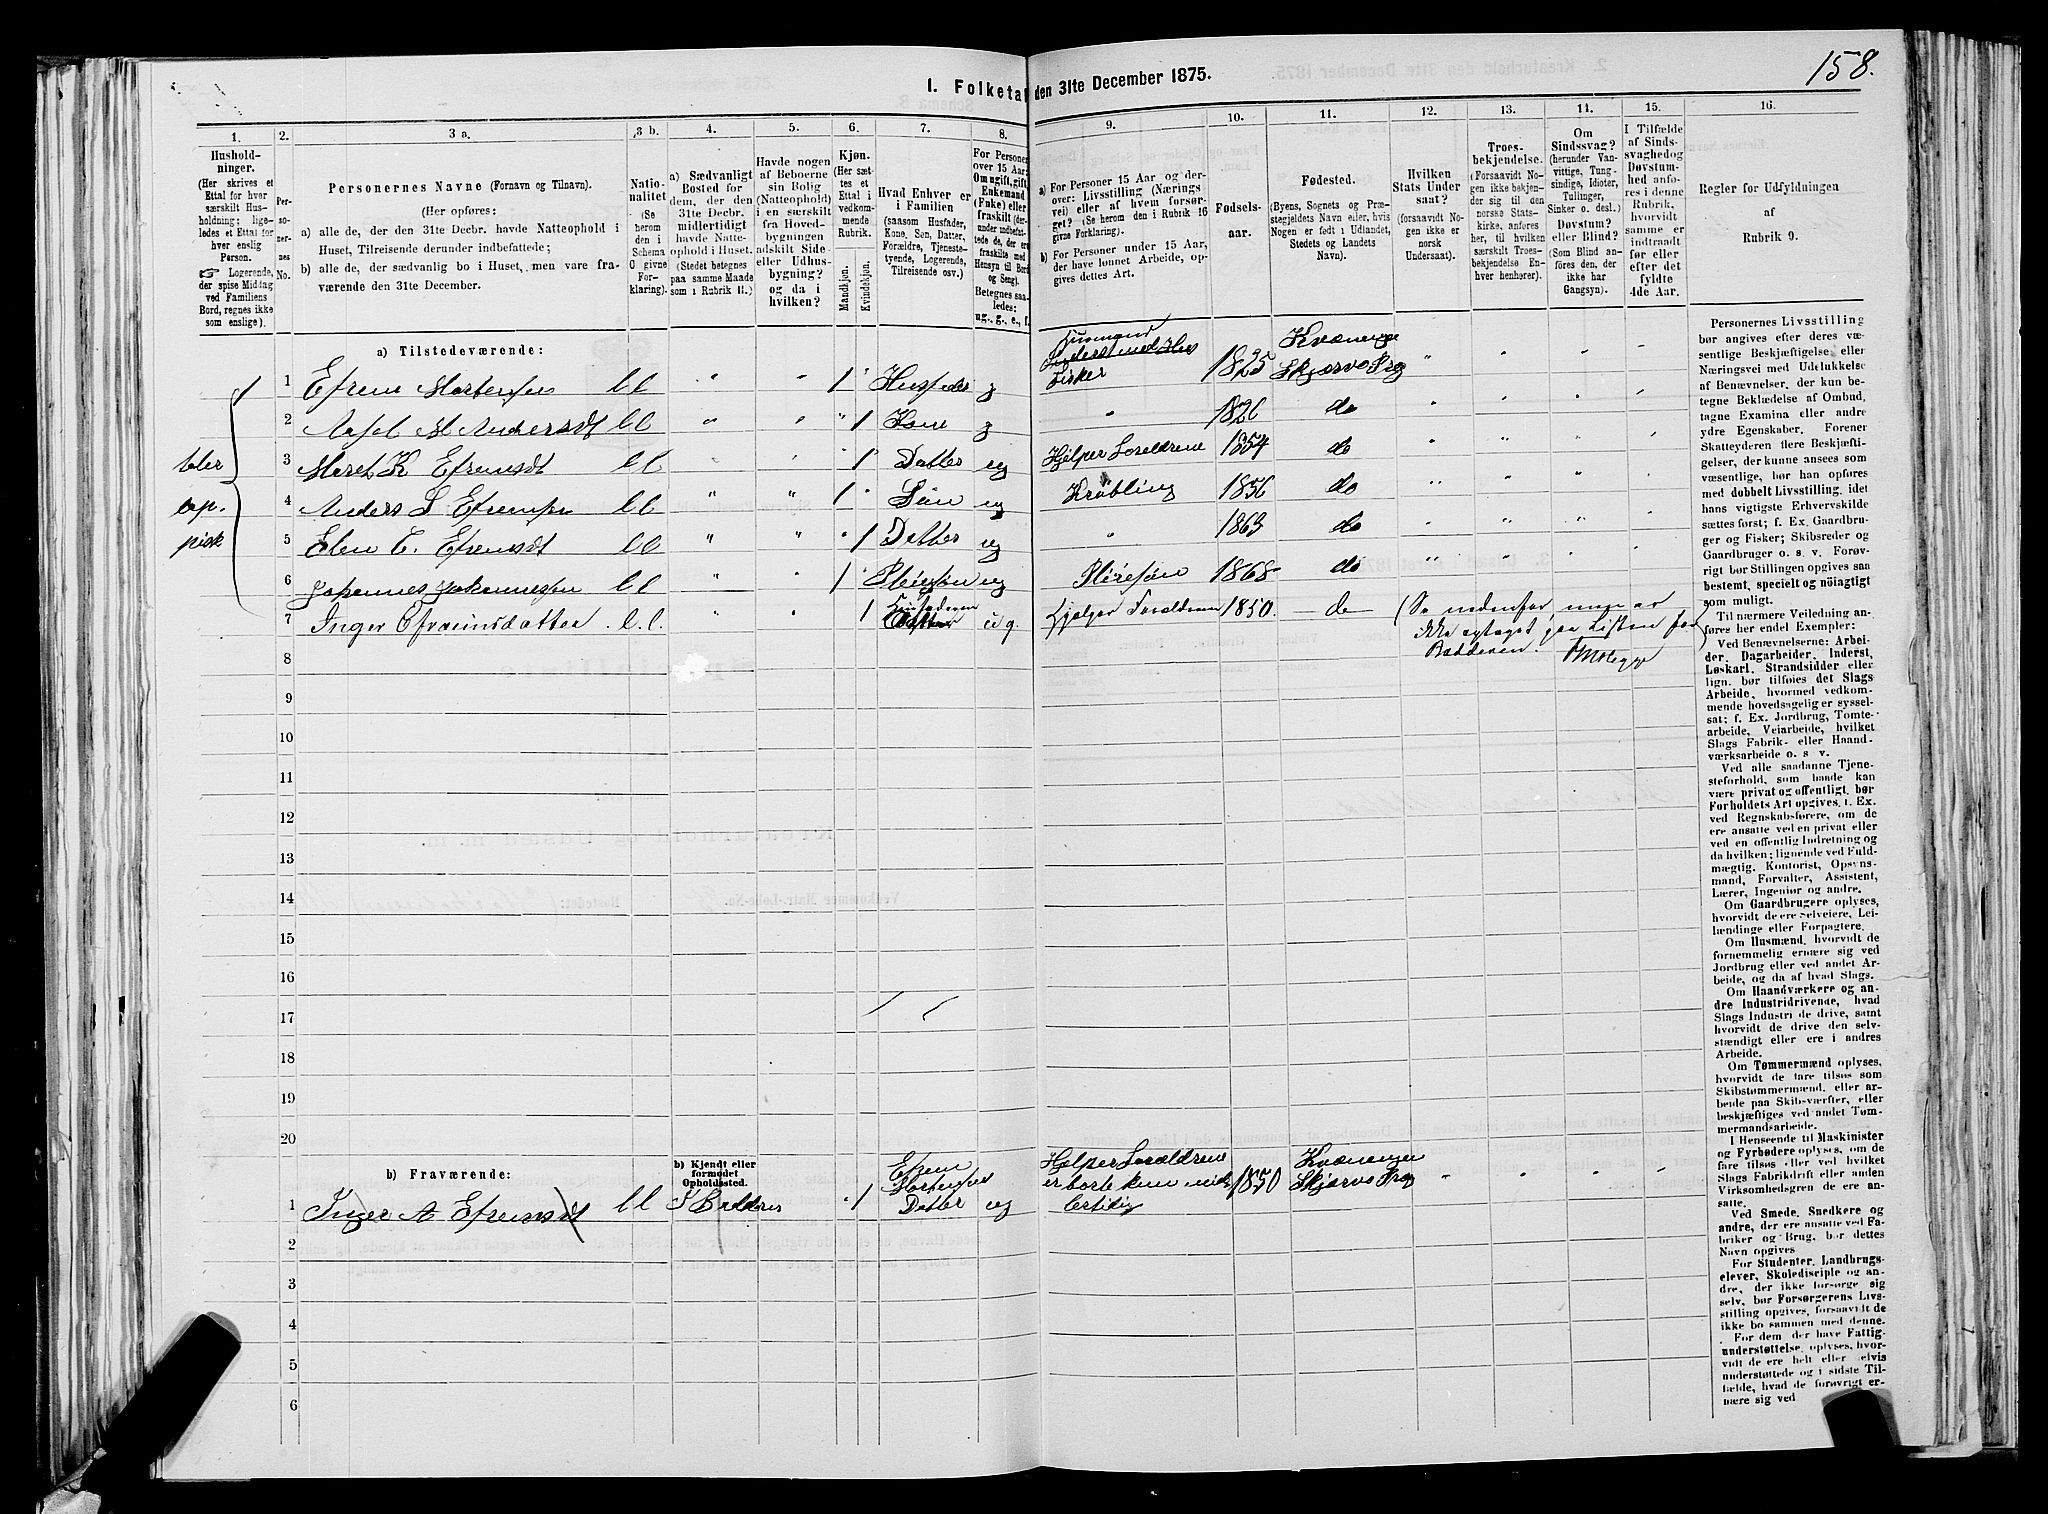 158.
1. Folketæ
den 31te December 1875.
1.
2.
3 a.
3 b.
4.
5.
6.
7.
8.
9.
10.
11.
12.
13.
14.
15.
16.
Hushold-
ninger.
(Her skrives et
Ettal for hver
særskilt Hus-
holdning; lige-
ledes et Ettal for
hver enslig
Person.
☞ Logerende,
der spise Middag
ved Familiens
Bord, regnes ikke
som enslige).
Per-
so-
ner-
nes
No.
Personernes Navne (Fornavn og Tilnavn).
(Her opføres:
a) alle de, der den 31te Decbr. havde Natteophold i
Huset, Tilreisende derunder indbefattede;
b) alle de, der sædvanlig bo i Huset, men vare fra-
værende den 31te December.
Natio-
nalitet
(Se
herom
den i
Schema
O givne
For-
klaring).
a) Sædvanligt
Bosted for
dem, der den
31te Decbr.
midlertidigt
havde Natte-
ophold i Huset.
(Stedet betegnes
paa samme Maade
som i Rubrik 11.)
Havde nogen
af Beboerne
sin Bolig
(Natteophold)
i en særskilt
fra Hoved-
bygningen
adskilt Side-
eller Udhus-
bygning?
og da i
hvilken?
Kjøn.
(Her sæt-
tes et
Ettal i
vedkom-
mende
Rubrik.
Mandkjøn.
Kvindekjøn.
Hvad Enhver er
i Familien
(saasom Husfader,
Kone, Søn, Datter,
Forældre, Tjeneste-
tyende, Logerende,
Tilreisende osv.)
For Personer
over 15 Aar:
Om ugift, gift,
Enkemand
(Enke) eller
fraskilt (der-
under indbefat-
tede de, der ere
fraskilte med
Hensyn til Bord
og Seng).
Betegnes saa-
ledes:
ug., g., e., f.
a) For Personer 15 Aar og der-
over: Livsstilling (Nærings-
vei) eller af hvem forsør-
get? (Se herom den i Rubrik 16
givne Forklaring).
b) For Personer under 15 Aar,
der have lønnet Arbeide, op-
gives dettes Art.
Fødsels-
aar.
Fødested.
(Byens, Sognets og Præ-
stegjeldets Navn eller, hvis
Nogen er født i Udlandet,
Stedets og Landets
Navn).
Hvilken
Stats Under-
saat?
(forsaavidt No-
gen ikke er
norsk
Undersaat).
Troes-
bekjendelse.
(Forsaavidt No-
gen ikke bekjen-
der sig til den
norske Stats-
kirke, anføres
her, til hvilken
særskilt Troes-
bekjendelse En-
hver henhører).
Om
Sindssvag?
(herunder Van-
vittige, Tung-
sindige, Idioter,
Tullinger,
Sinker o. desl.)
Døvstum?
eller Blind?
(Som Blind an-
føres den, der
ikke har
Gangsyn).
I Tilfælde
af Sinds-
svaghed og
Døvstum-
hed anfø-
res i denne
Rubrik,
hvorvidt
samme er
indtraadt
før eller
efter det
fyldte
4de Aar.
Regler for Udfyldningen
af
Rubrik 9.
a) Tilstedeværende:
1 Efrem Mortensen ll " " 1 " Husfader g Husmand Fisker 1825 Kvænangen Skjervø Præg " " " "
2 M Andersdt ll " " " 1 Kone g " 1826 do " " " "
3 Maret K Efremsdt ll 1 Datter ug Hjelper Foreldrene 1854 do " " "
4 Anders S Efremsen ll " " 1 " Søn ug 1856 do " " " "
5 Elen C. Efremsdt ll " " " 1 Datter ug " 1863 do " " "
6 Johannes Johannessen ll " " 1 Pleiesøn ug Pleiesøn 1868 do " " " "
7 Inger Efraimsdatter l.l. " " 1 Husfaderens Datter ug. Hjelper Forældrene 1850. do (Se nedenfor
ikke optaget paa Listen for
Badderen.
8
9
10
11
12
13
14
15
16
17
18
19
20
b) Fraværende:
b) Kjendt eller
formodet
Opholdssted.
1 Inger A Efremsdt ll Badderen " 1 Efrem Mortensens Datter ug Hjelper Foreldrene er borte kun midlertidig 1850 Kvænangen Skjervø Præg " " " "
2
3
4
5
6
Personernes Livsstilling
bør angives efter deres væ-
sentlige Beskjæftigelse eller
Næringsvei med Udelukkelse
af Benævnelser, der kun be-
tegne Beklædelse af Ombud,
tagne Examina eller andre
ydre Egenskaber. Forener
Skatteyderen flere Beskjæfti-
gelser, der kunne ansees som
væsentlige, bør han opføres
med dobbelt Livsstilling, idet
hans vigtigste Erhvervskilde
sættes først; f. Ex. Gaardbru-
ger og Fisker; Skibsreder og
Gaardbruger o. s. v. Forøv-
rigt bør Stillingen opgives saa
bestemt, specielt og nøiagtigt
som muligt.
Til nærmere Veiledning an-
føres her endel Exempler:
Ved Benævnelserne: Arbei-
der, Dagarbeider, Inderst,
Løskarl, Strandsidder eller
lign. bør tilføies det Slags
Arbeide, hvormed vedkom-
mende hovedsagelig er syssel-
sat; f. Ex. Jordbrug, Tomte-
arbeide, Veiarbeide, hvilket
Slags Fabrik- eller Haand-
værksarbeide o. s. v.
Ved alle saadanne Tjene-
steforhold, som baade kan
være privat og offentligt, bør
Forholdets Art opgives, t. Ex.
ved Regnskabsførere, om de
ere ansatte ved en privat eller
ved en offentlig Indretning og
da hvilken; lignende ved Fuld-
mægtig, Kontorist, Opsyns-
mand, Forvalter, Assistent,
Lærer, Ingeniør og andre.
Om Gaardbrugere oplyses,
hvorvidt de ere Selveiere, Lei-
lændinge eller Forpagtere.
Om Husmænd, hvorvidt de
fornemmelig ernære sig ved
Jordbrug eller ved andet Ar-
beide, og da af hvad Slags.
Om Haandværkere og an-
dre Industridrivende, hvad
Slags Industri de drive, samt
hvorvidt de drive den selv-
stændigt eller ere i andres
Arbeide.
Om Tømmermænd oplyses,
hvorvidt de fare tilsøs som
Skibstømmermænd, eller ar-
beide paa Skibsværfter, eller
beskjæftiges ved andet Tøm-
mermandsarbeide.
I Henseende til Maskinister
og Fyrbødere oplyses, om de
fare tilsøs eller ved hvilket
Slags Fabrikdrift eller anden
Virksomhedsgren de ere an-
satte.
Ved Smede, Snedkere og
andre, der ere ansatte ved Fa-
briker og Brug, bør dettes
Navn opgives
For Studenter, Landbrugs-
elever, Skoledisciple og an-
dre, der ikke forsørge sig
selv, bør Forsørgerens Livs-
stilling opgives, forsaavidt de
ikke bo sammen med denne.
For dem, der have Fattig-
understøttelse, oplyses, hvor-
vidt de ere helt eller delvis
understøttede og i sidste Til-
fælde, hvad de forøvrigt er-
nære sig ved